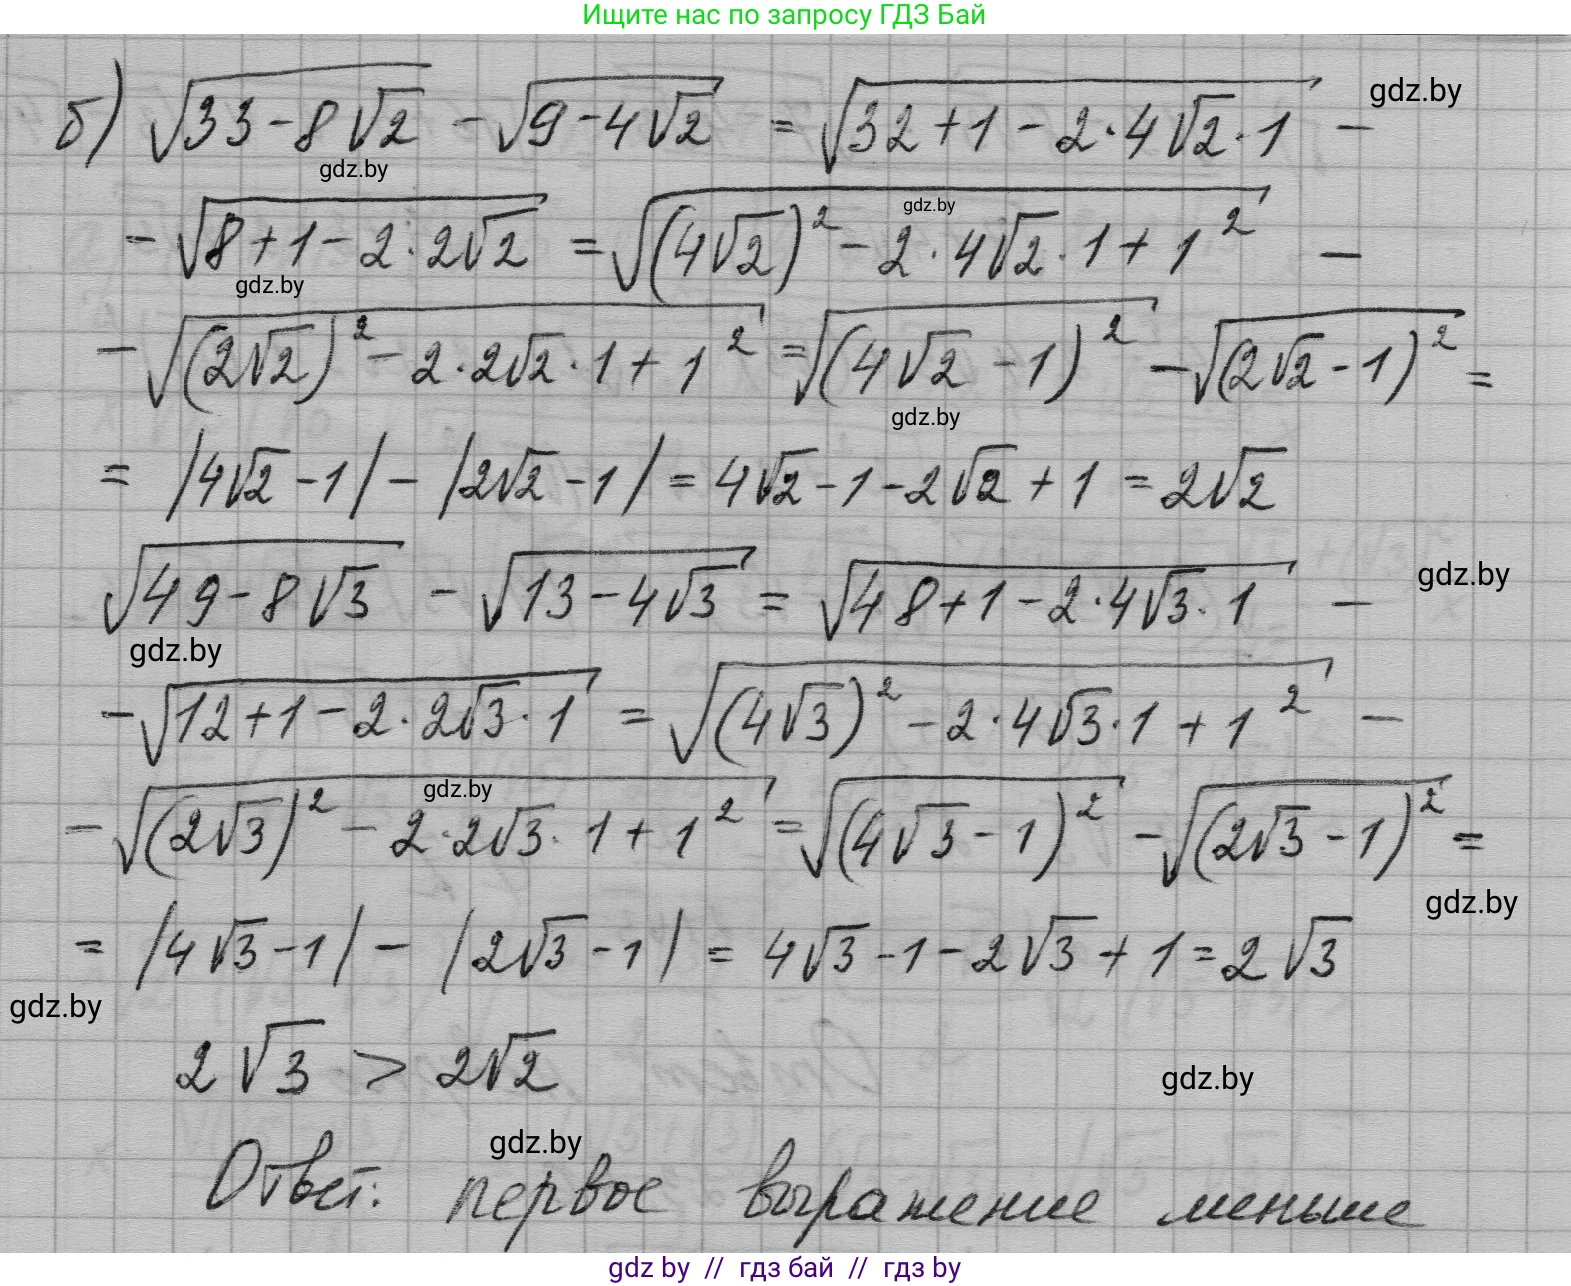 Ищите нас по запросу ГДЗ Бай
б) √(33-8√2) - √(9-4√2) = √(32+1-2·4√2·1) -
gdz.by
gdz.by
- √(8+1-2·2√2) = √((4√2)²-2·4√2·1+1²) -
gdz.by
gdz.by
- √((2√2)²-2·2√2·1+1²) = √((4√2-1)²) - √((2√2-1)²) =
gdz.by
= |4√2-1| - |2√2-1| = 4√2-1-2√2+1 = 2√2
√(49-8√3) - √(13-4√3) = √(48+1-2·4√3·1) -
gdz.by
gdz.by
- √(12+1-2·2√3·1) = √((4√3)²-2·4√3·1+1²) -
gdz.by
- √((2√3)²-2·2√3·1+1²) = √((4√3-1)²) - √((2√3-1)²) =
gdz.by
= |4√3-1| - |2√3-1| = 4√3-1-2√3+1 = 2√3
gdz.by
2√3 > 2√2
gdz.by
gdz.by
Ответ: первое выражение меньше
gdz by // гдз бай // гдз by